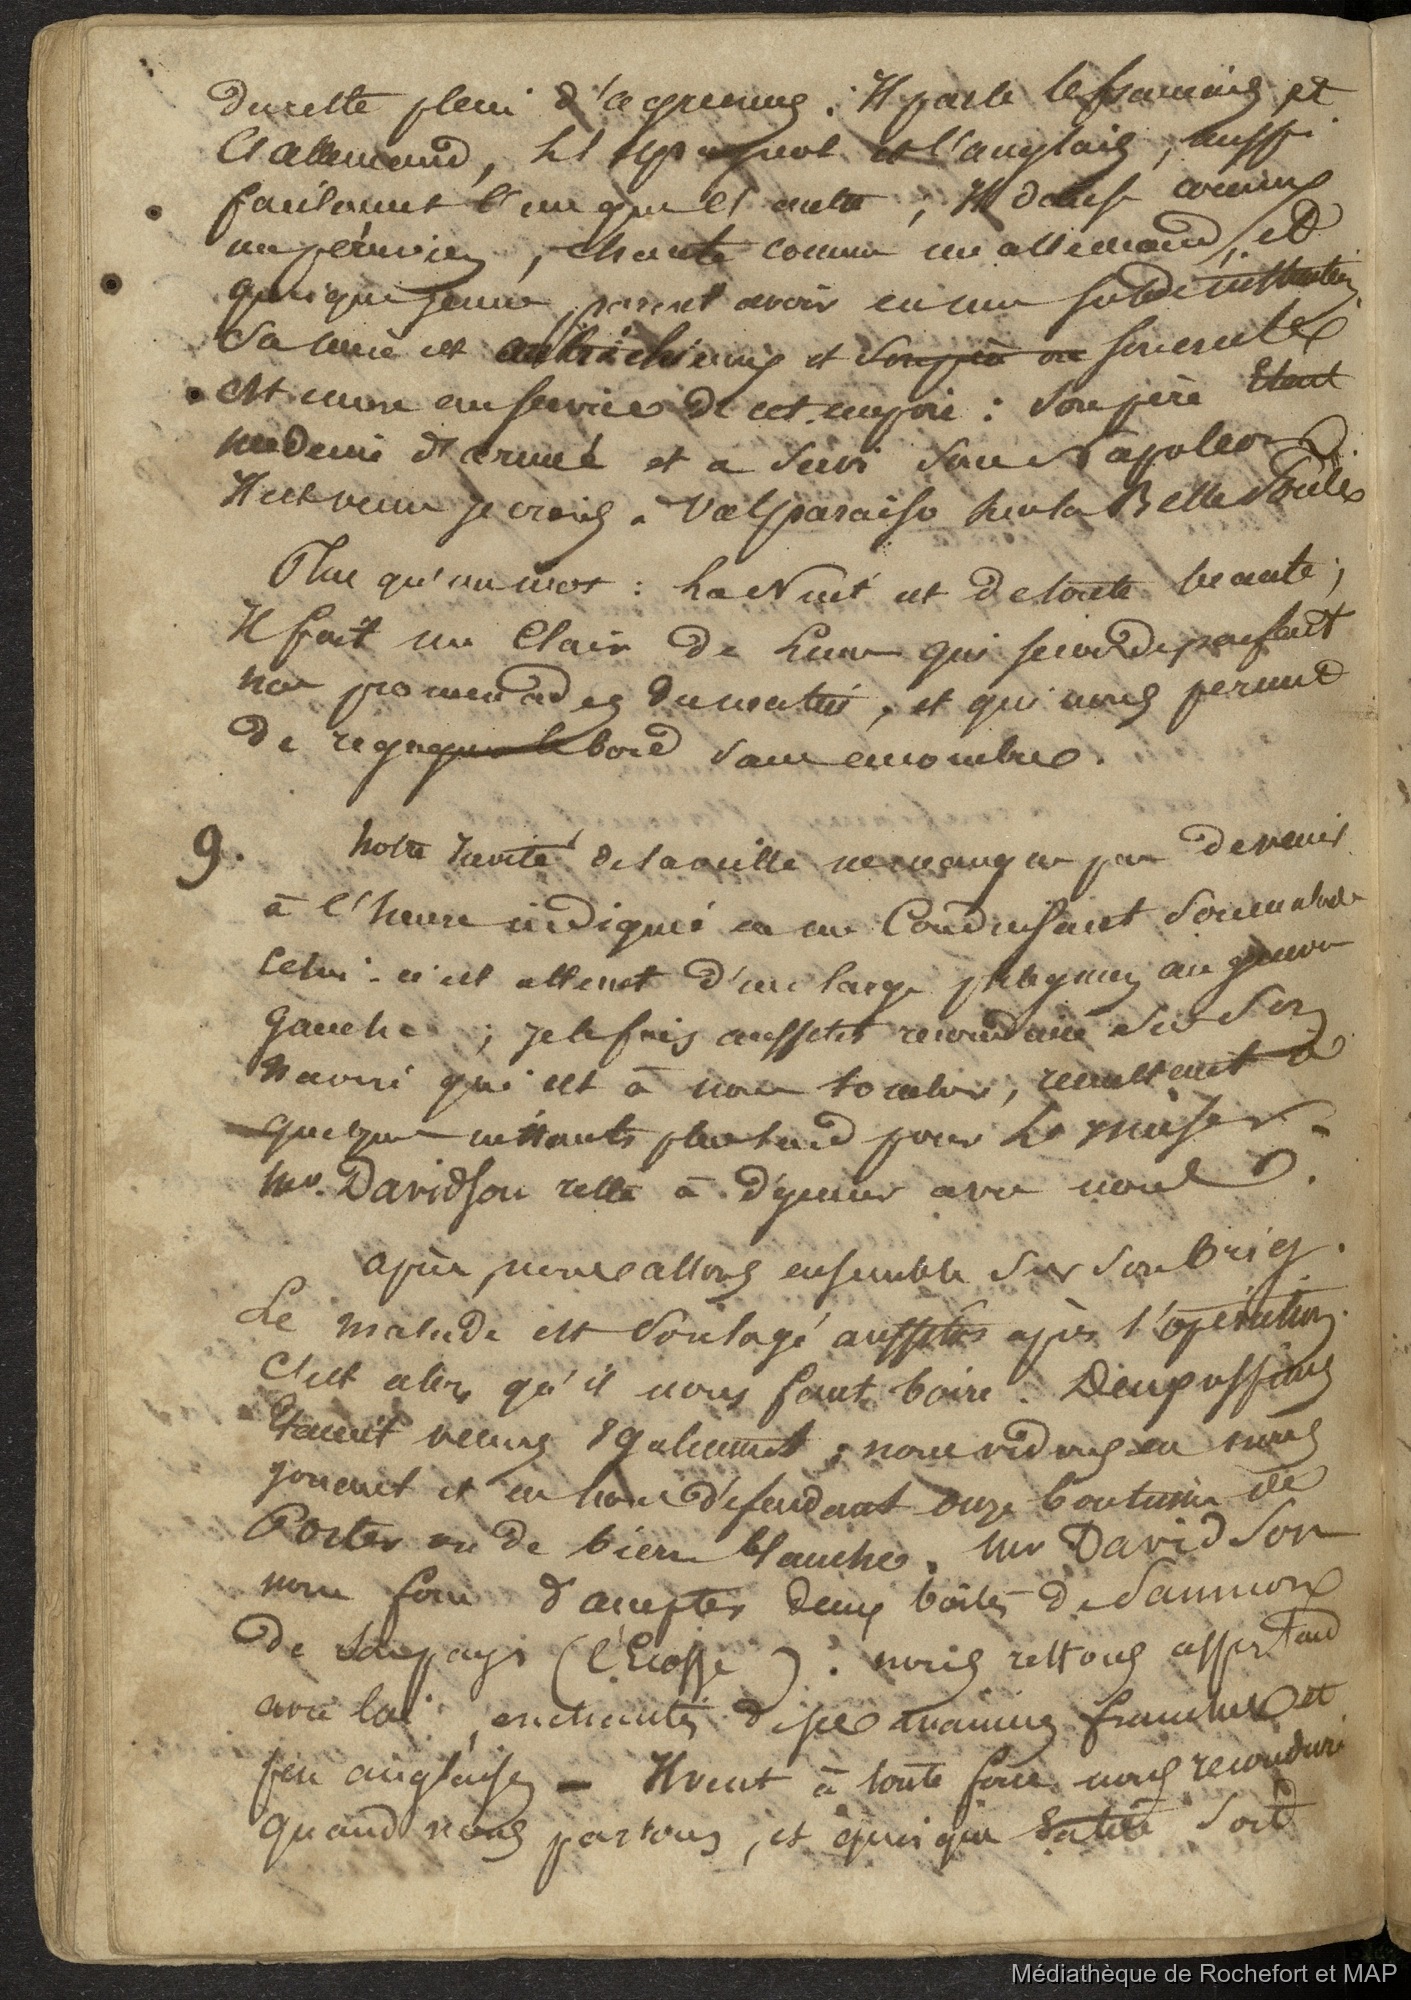 du reste plein d'agrémens. Il parle le français et
l'allemand, l'espagnol et l'anglais, aussi
facilement l'un que l'autre ; Il danse comme
un péruvien, chante comme un allemand, et
quoique jeune, parait avoir eu une solide instruction
Sa mère est autrichienne et son oncle
est encore au service de cet empire : Son père Etait
médecin d'armée et a suivi Napoléon
Il est venu je crois à Valparaiso sur la Belle Poule
Plus qu'un mot : La Nuit est de toute beauté ;
Il fait un Clair de Lune qui seconde parfait
nos promenades du matin, et qui nous permet
de regagner le bord sans encombre.
9. Notre invité de la veille ne manque pas de venir
à l'heure indiquée en me Conduisant son malade
Celui-ci est atteint d'un large phlegmon au genou
Gauche ; je le fais aussitot reconduire sur son
navire qui est à nous toucher, remettant à
quelques instants plus tard pour
Mr. Davidson reste à déjeuner avec nous.
Après, nous allons ensemble sur son brig.
Le malade est soulagé aussitôt après l'opération.
C'est alors qu'il nous faut boire. Deux passagers
étant venus également, nous vidons en nous
jouant et en nous défendant onze bouteilles de
Porter ou de bière blanche. Mr Davidson
nous force d'accepter deux boîtes de Saumon
de son pays (l'Ecosse) : nous restons assez tard
avec lui, enchantés de ses manières franches et
peu anglaises — Il veut à toute force nous reconduire
quand nous partons, et quoique soit